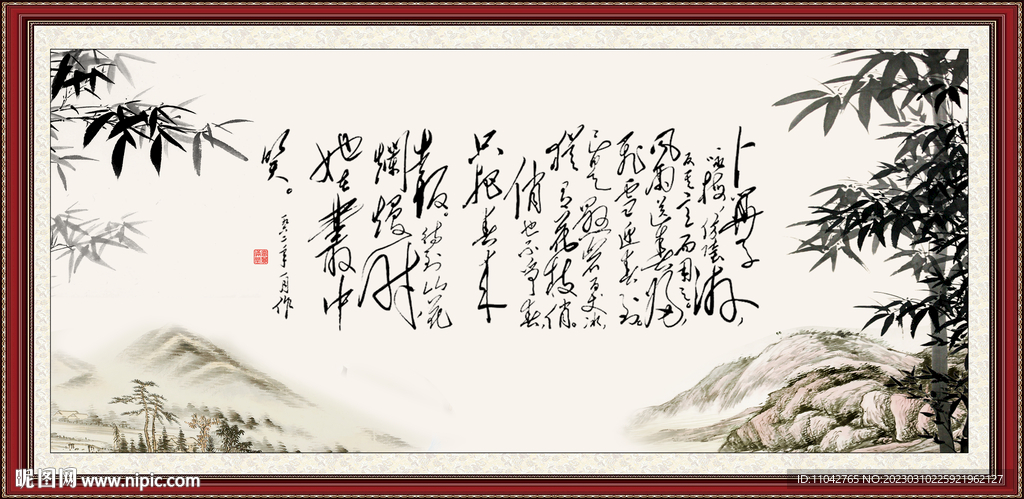 卜算子
咏梅 读陆游,
反其意而用之。
风雨送春归,
飞雪迎春到。
已是悬岩百丈冰,
犹有花枝俏。
俏也不争春,
只把春来
报。待到山花
烂漫时,
她在丛中
笑。
昵图网 www.nipic.com
ID:11042765 NO:20230310225921962127